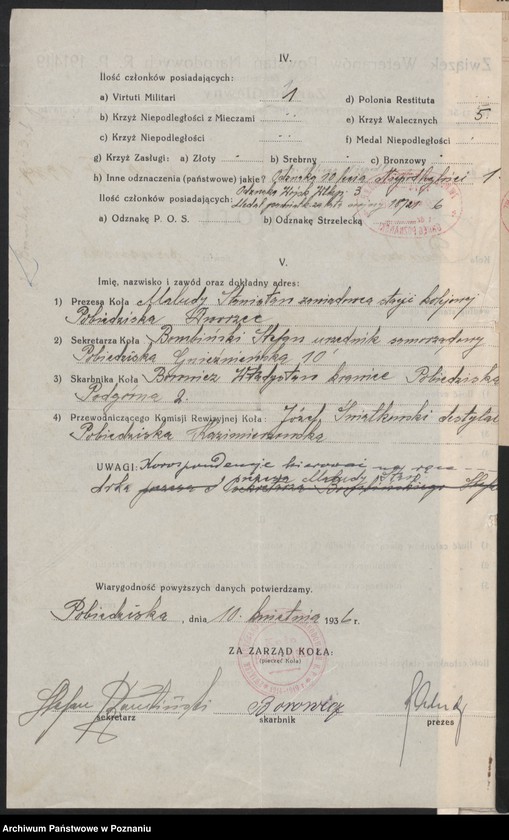 IV.
Ilość członków posiadających:
a) Virtuti Militari 1 d) Polonia Restituta
b) Krzyż Niepodległości z Mieczami e) Krzyż Walecznych 5
c) Krzyż Niepodległości f) Medal Niepodległości
g) Krzyż Zasługi: a) Złoty b) Srebrny c) Bronzowy
h) Inne odznaczenia (państwowe) jakie? Odznaka 1
Odznaka Wojsk Wlkp. 3
Ilość członków posiadających: Medal 6
a) Odznakę P. O. S. b) Odznakę Strzelecką
V.
Imię, nazwisko i zawód oraz dokładny adres:
1) Prezesa Koła Maludy Stanisław zawiadowca stacji kolejowej
Pobiedziska Dworzec
2) Sekretarza Koła Stefan urzędnik samorządowy
Pobiedziska Gnieźnieńska 10
3) Skarbnika Koła Władysław krawiec Pobiedziska
Podgórna 2.
4) Przewodniczącego Komisji Rewizyjnej Koła: Józef Świątkowski
Pobiedziska Kazimierzowska
UWAGI: Korespondencje kierować na ręce
prezesa Maludy
Wiarygodność powyższych danych potwierdzamy.
Pobiedziska, dnia 10. kwietnia 1936 r.
ZA ZARZĄD KOŁA:
(pieczęć Koła)
Stefan Borowicz
sekretarz skarbnik prezes
Archiwum Państwowe w Poznaniu